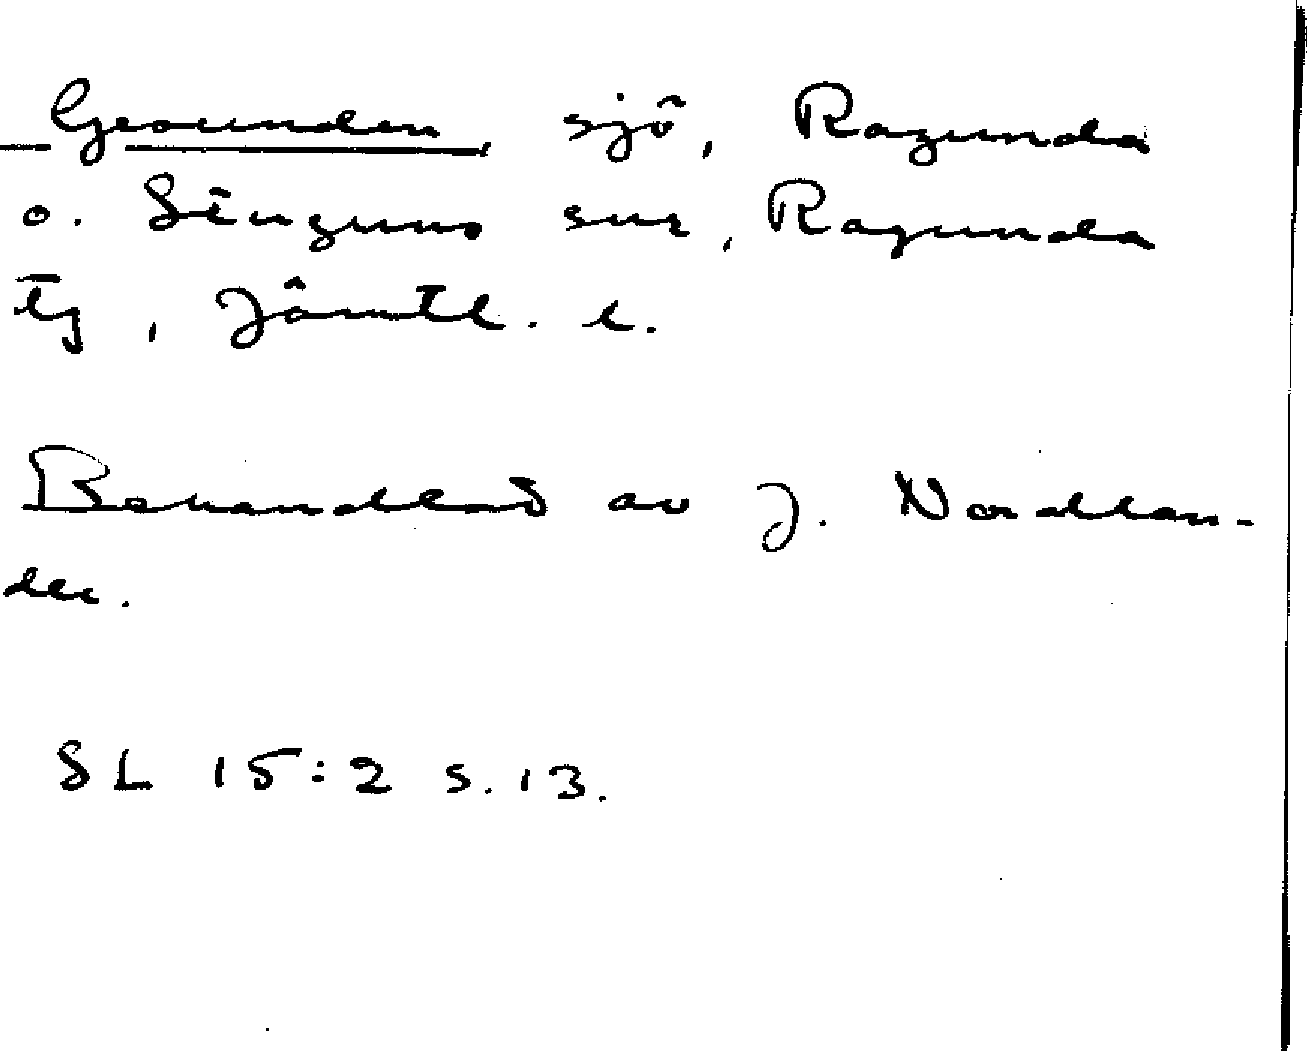 Gesunden, sjö, Ragunda
o. Stuguns snr, Ragunda
tg, Jämtl. l.
Behandlad av J. Nordlan-
der.
SL 15:2 s. 13.